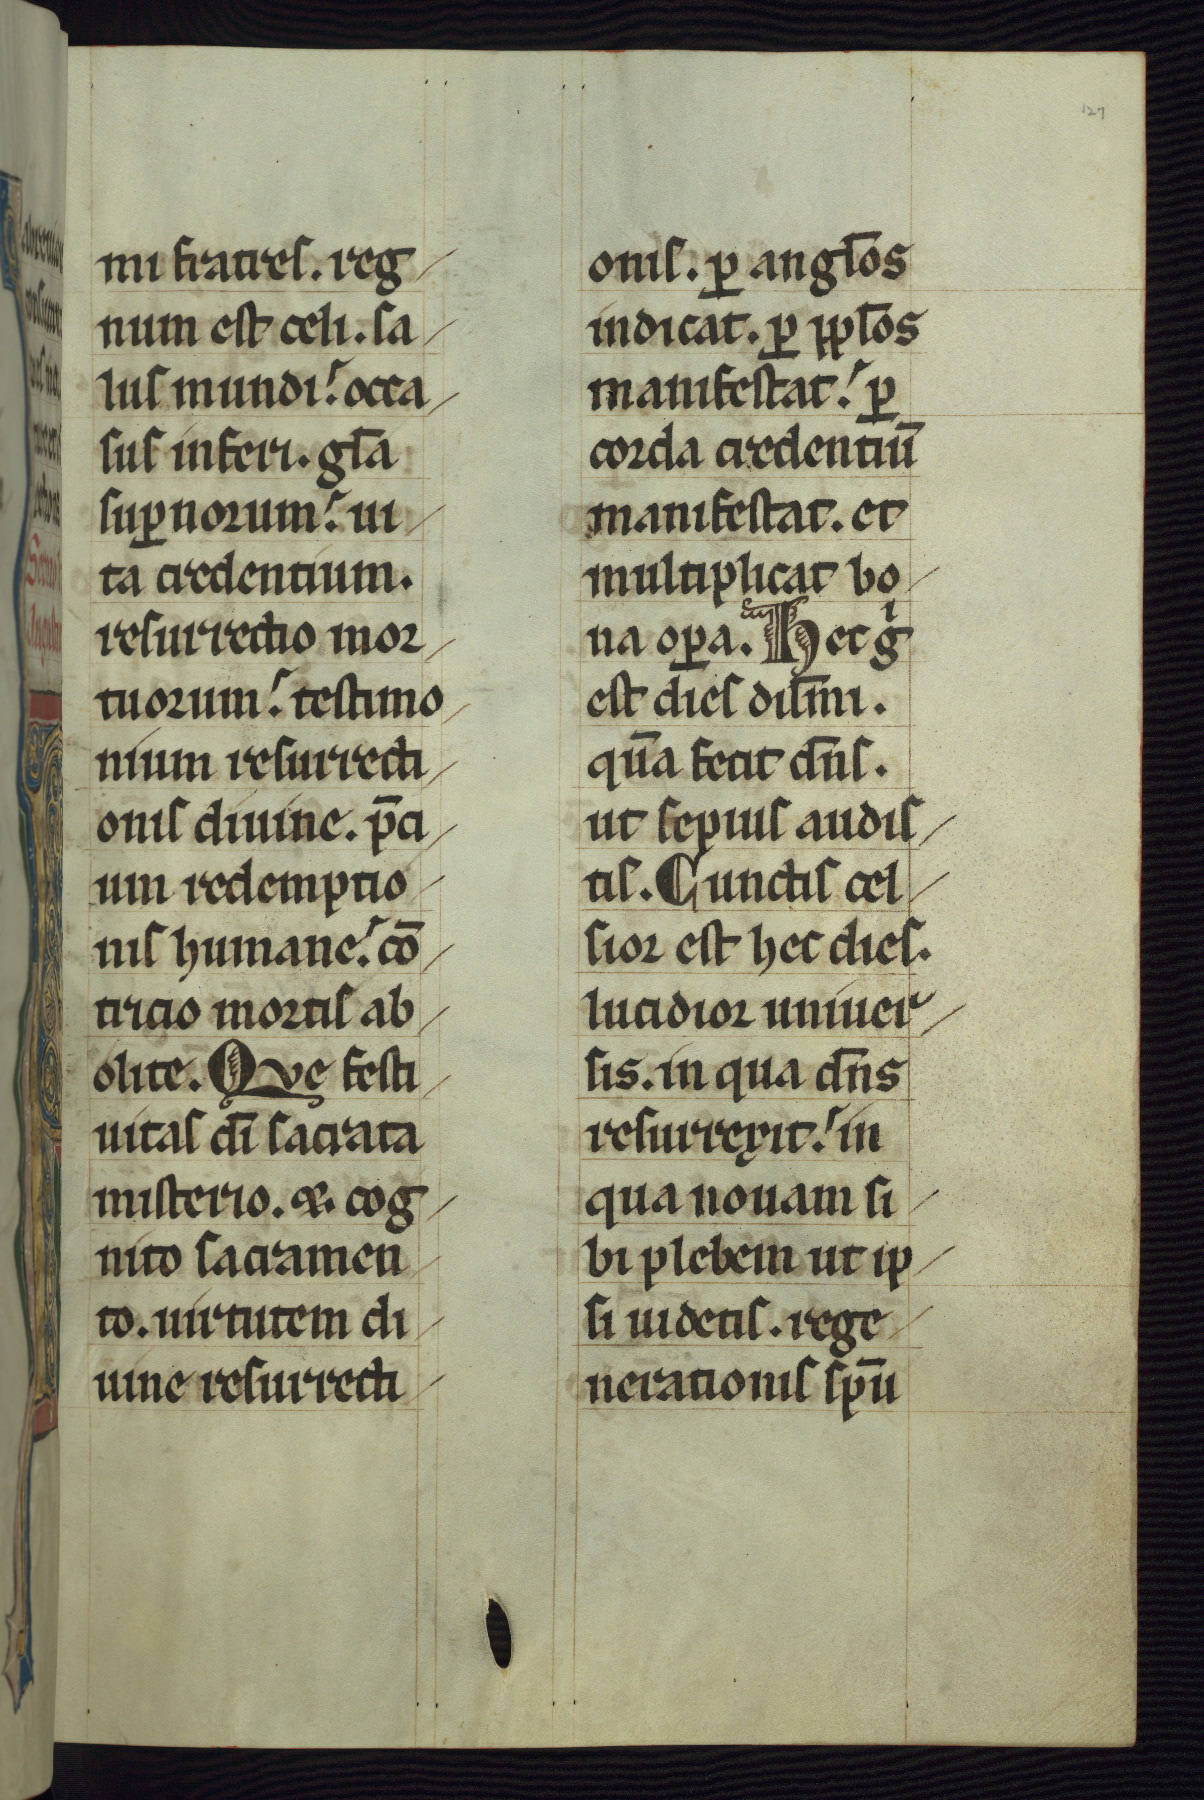 127
mi fratres. reg
num est celi. sa
lus mundi. occa
sus inferi. gl̄a
suꝑnorum. ui
ta credentium.
resurrectio mor
tuorum. testimo
nium resurrecti
onis diuine. p̄ci
um redemptio
nis humane. cō
tricio mortis ab
olite. Que festi
uitas dī sacrata
misterio. & cog
nito sacramen
to. uirtutem di
uine resurrecti
onis. ꝑ angl̄os
indicat. ꝑ ppl̄os
manifestat. ꝑ
corda credentiū
manifestat. et
multiplicat bo
na oꝑa. Hec gͥ
est dies dil̄mi.
quā fecit dn̄s.
ut sepius audis
tis. Cunctis cel
sior est hec dies.
lucidior uniuer
sis. in qua dn̄s
resurrexit. in
qua nouam si
bi plebem ut ip
si uidetis. rege
nerationis sp̄u